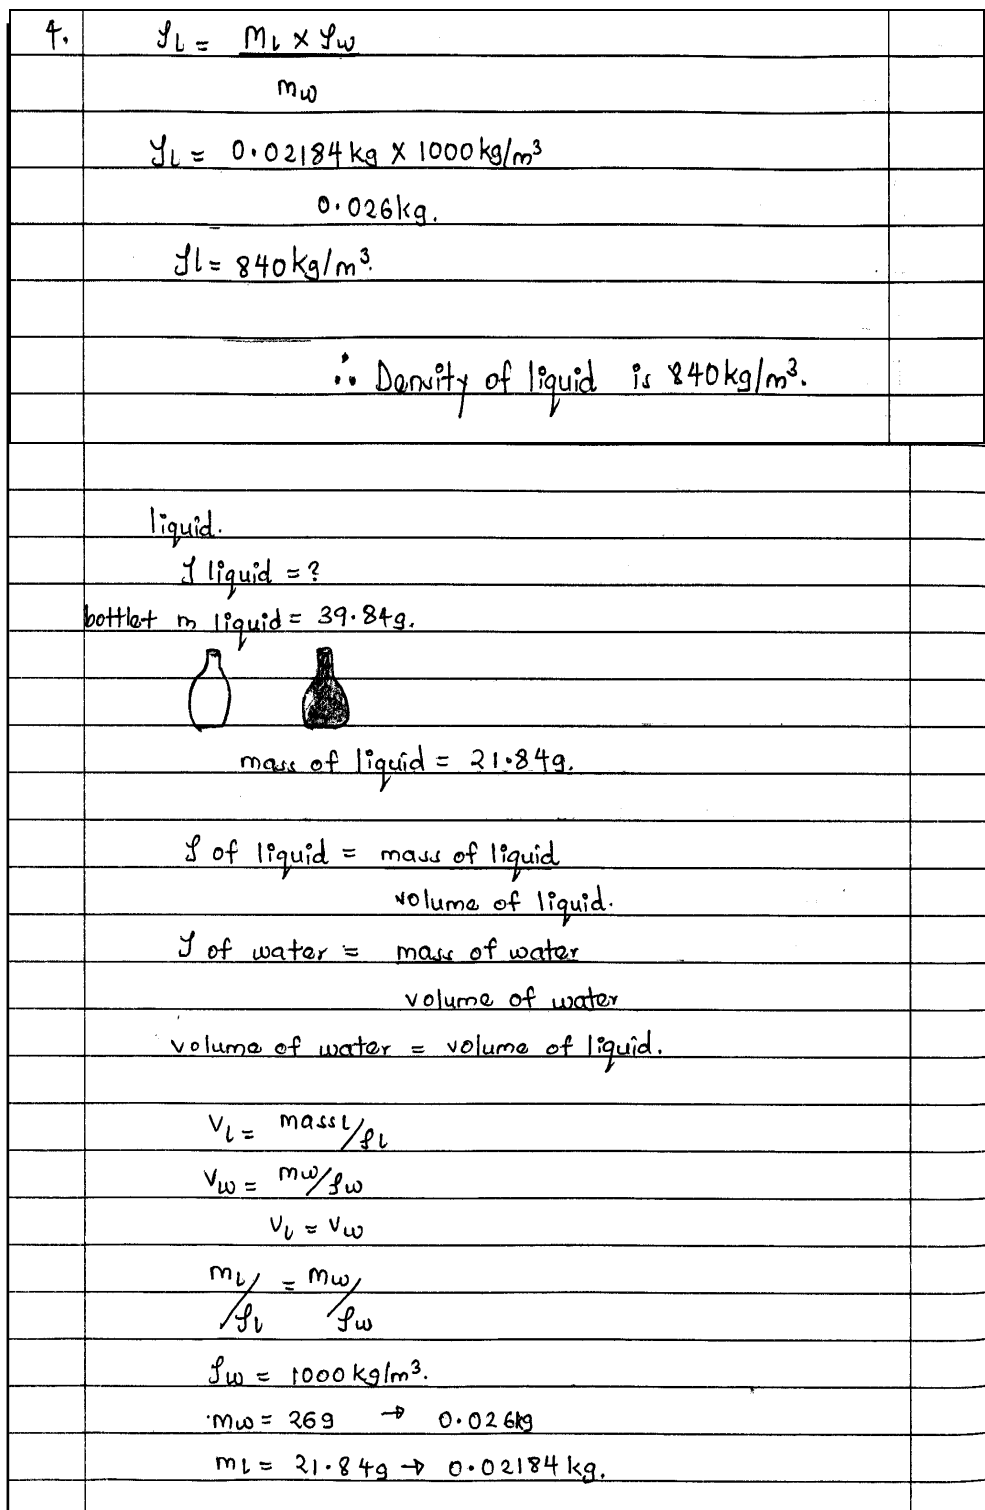 4.
ρL = ML × ρw
mw
ρL = 0.02184 kg × 1000 kg/m³
0.026 kg.
ρl = 840 kg/m³.
∴ Density of liquid is 840 kg/m³.
liquid.
ρ liquid = ?
bottle + m liquid = 39.84g.
mass of liquid = 21.84g.
ρ of liquid = mass of liquid
volume of liquid.
ρ of water = mass of water
volume of water
volume of water = volume of liquid.
VL = massL/ρL
Vw = mw/ρw
VL = Vw
mL/ρL = mw/ρw
ρw = 1000 kg/m³.
mw = 26g → 0.026kg
mL = 21.84g → 0.02184 kg.